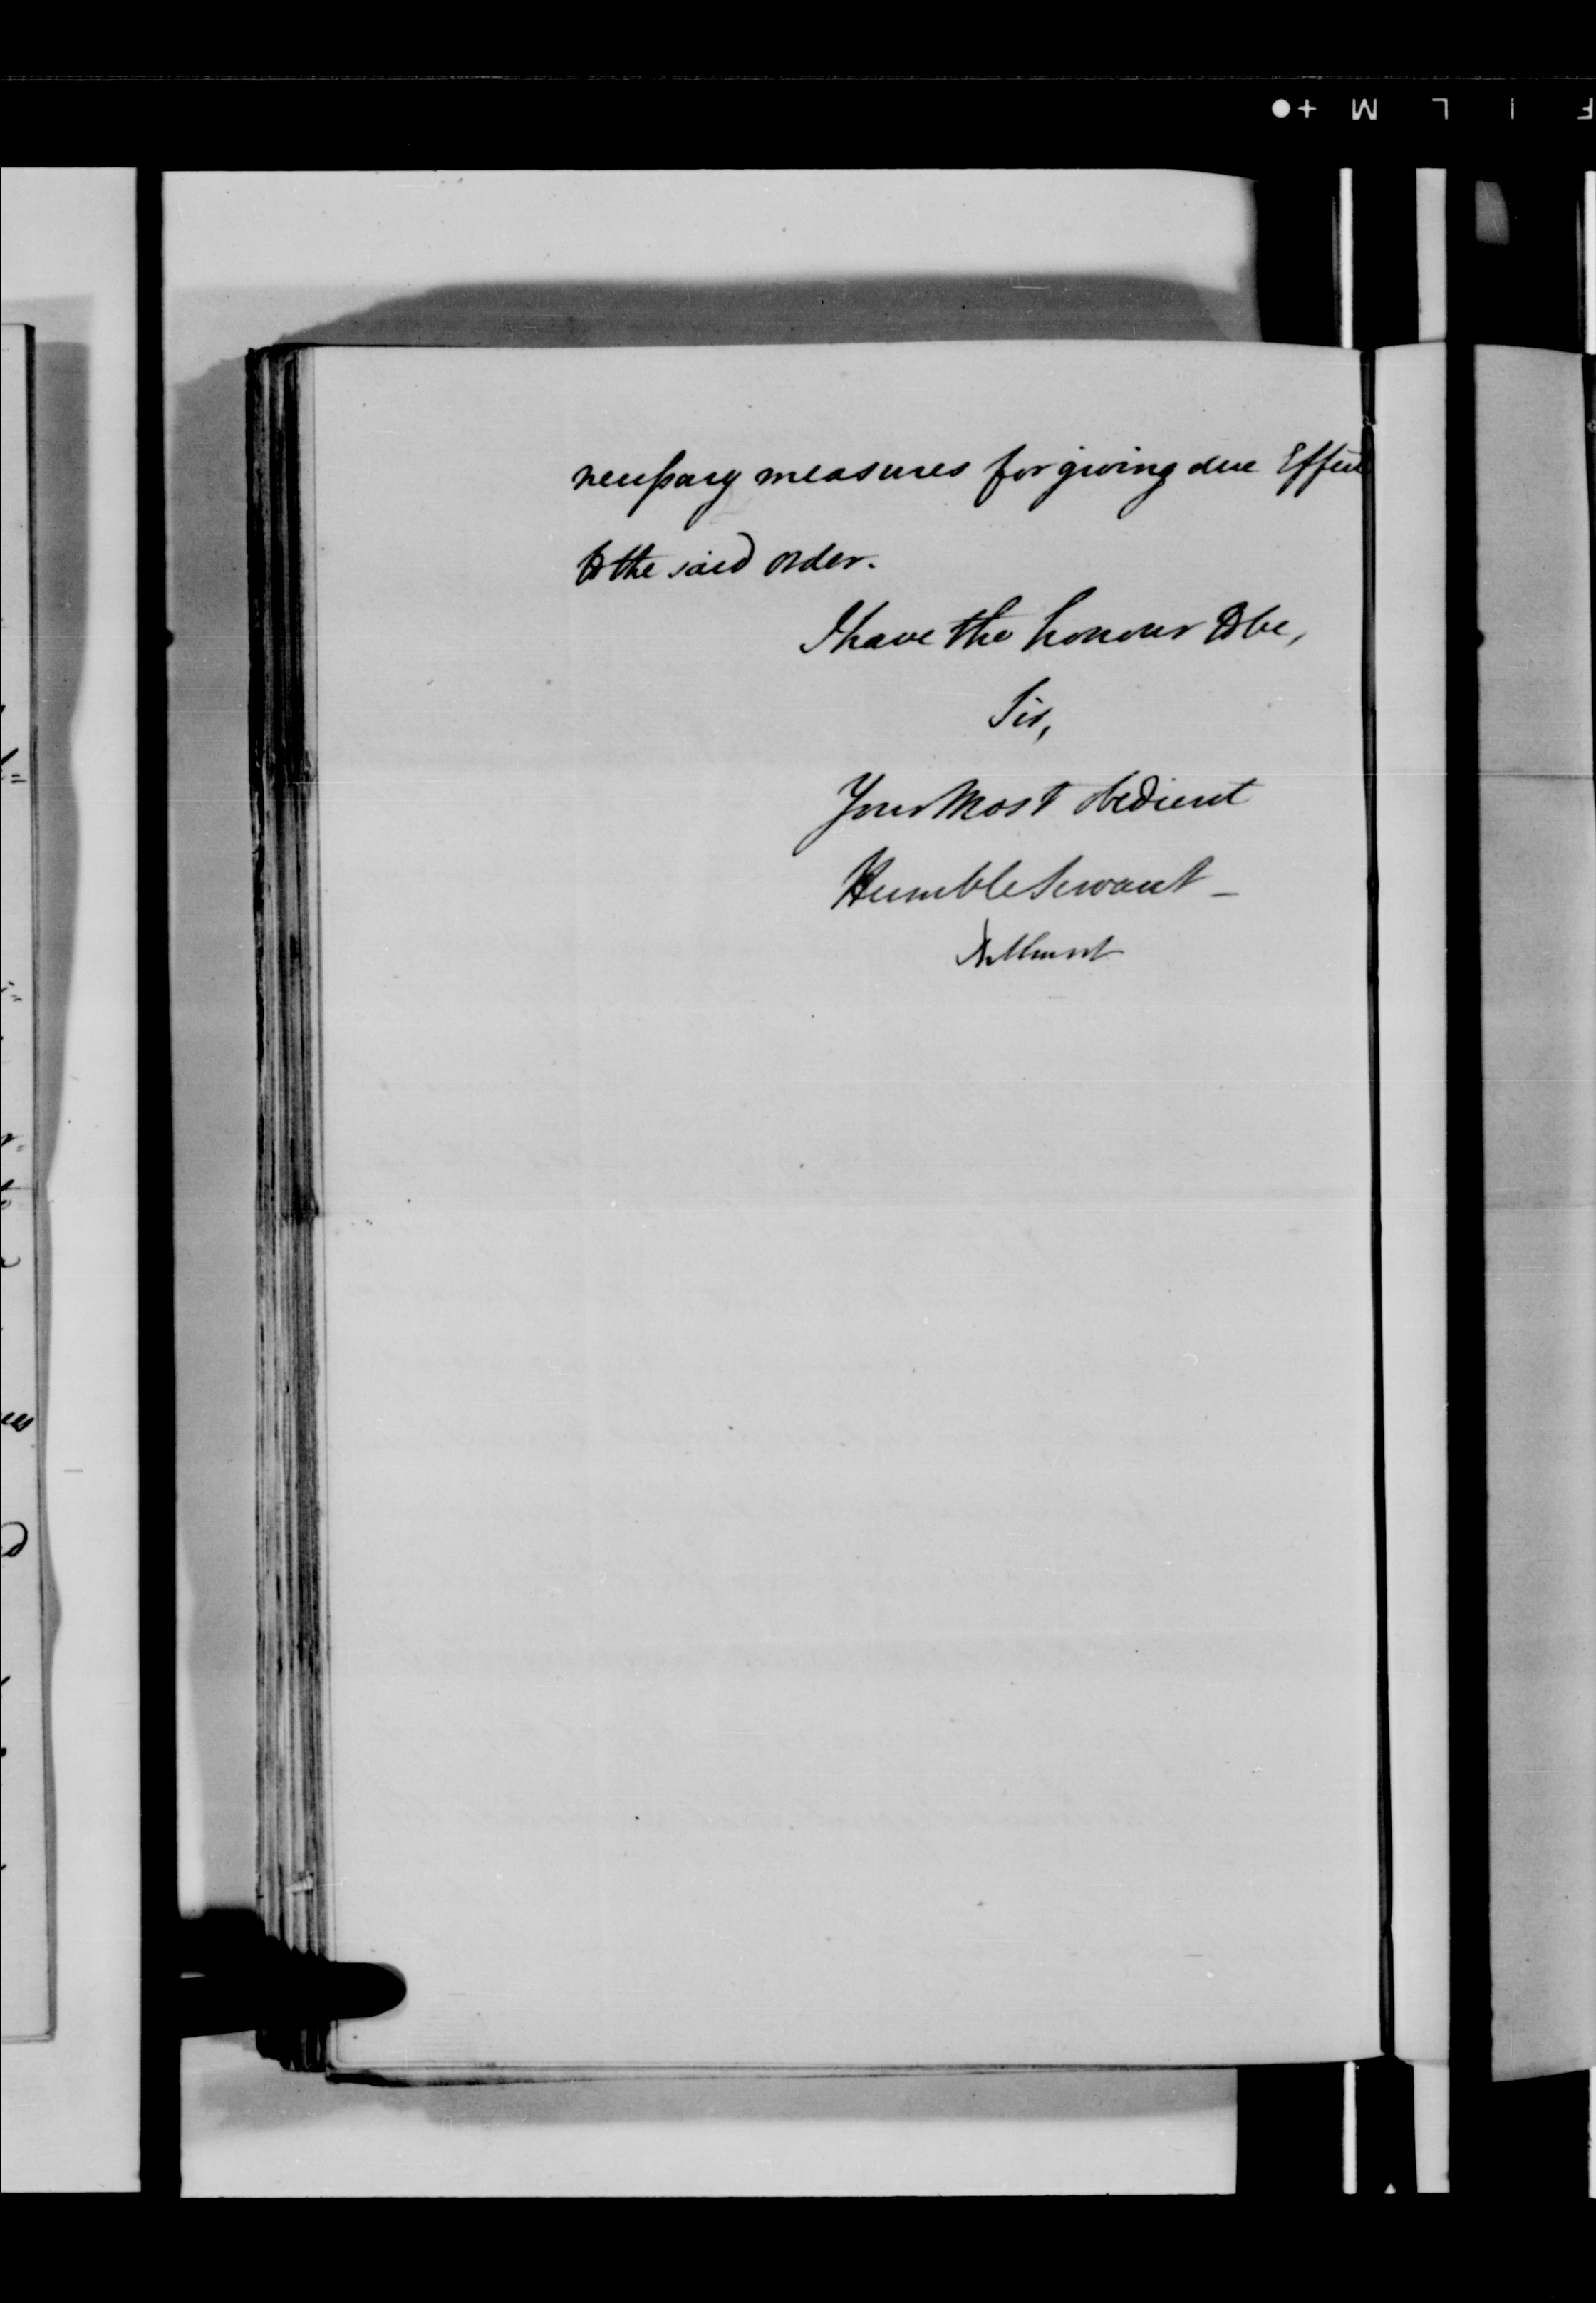 necessary measures for giving due Effect
to the said order.
I have the honour to be,
Sir,
Your Most obedient
Humble Servant -